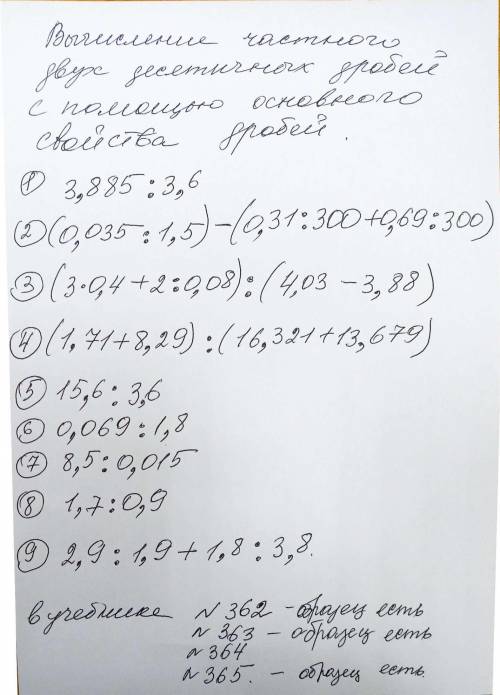 Вычисление частного
двух десятичных дробей
с помощью основного
свойства дробей.
① 3,885 : 3,6
② (0,035 : 1,5) - (0,31 : 300 + 0,69 : 300)
③ (3·0,4 + 2 : 0,08) : (4,03 - 3,88)
④ (1,71 + 8,29) : (16,321 + 13,679)
⑤ 15,6 : 3,6
⑥ 0,069 : 1,8
⑦ 8,5 : 0,015
⑧ 1,7 : 0,9
⑨ 2,9 : 1,9 + 1,8 : 3,8.
в учебнике № 362 - образец есть
№ 363 - образец есть
№ 364
№ 365. - образец есть.